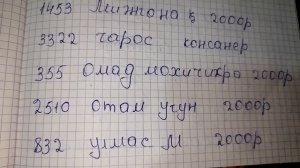 1453 Мижгона 5 2000р
3322 чарос консанер
355 Омад мохичихра 2000р
2510 отам учун 2000р
832 улмас М 2000р